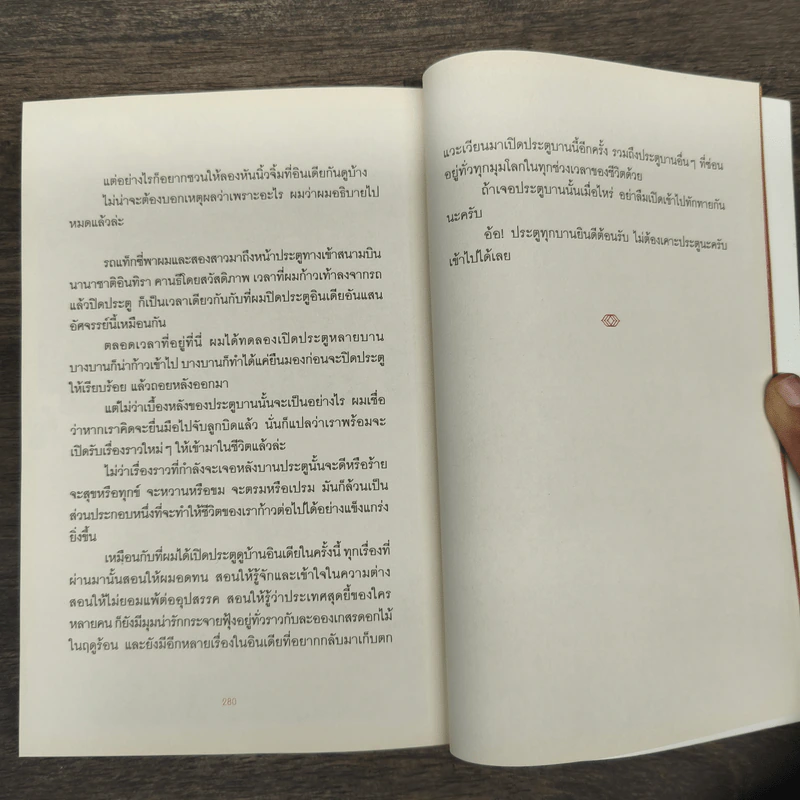 แต่อย่างไรก็อยากชวนให้ลองหันนิ้วจิ้มที่อินเดียกันดูบ้าง
ไม่น่าจะต้องบอกเหตุผลว่าเพราะอะไร ผมว่าผมอธิบายไป
หมดแล้วล่ะ
รถแท็กซี่พาผมและสองสาวมาถึงหน้าประตูทางเข้าสนามบิน
นานาชาติอินทิรา คานธีโดยสวัสดิภาพ เวลาที่ผมก้าวเท้าลงจากรถ
แล้วปิดประตู ก็เป็นเวลาเดียวกันกับที่ผมปิดประตูอินเดียอันแสน
อัศจรรย์นี้เหมือนกัน
ตลอดเวลาที่อยู่ที่นี่ ผมได้ทดลองเปิดประตูหลายบาน
บางบานก็น่าก้าวเข้าไป บางบานก็ทำได้แค่ยืนมองก่อนจะปิดประตู
ให้เรียบร้อย แล้วถอยหลังออกมา
แต่ไม่ว่าเบื้องหลังของประตูบานนั้นจะเป็นอย่างไร ผมเชื่อ
ว่าหากเราคิดจะยื่นมือไปจับลูกบิดแล้ว นั่นก็แปลว่าเราพร้อมจะ
เปิดรับเรื่องราวใหม่ๆ ให้เข้ามาในชีวิตแล้วล่ะ
ไม่ว่าเรื่องราวที่กำลังจะเจอหลังบานประตูนั้นจะดีหรือร้าย
จะสุขหรือทุกข์ จะหวานหรือขม จะตรมหรือเปรม มันก็ล้วนเป็น
ส่วนประกอบหนึ่งที่จะทำให้ชีวิตของเราก้าวต่อไปได้อย่างแข็งแกร่ง
ยิ่งขึ้น
เหมือนกับที่ผมได้เปิดประตูดูบ้านอินเดียในครั้งนี้ ทุกเรื่องที่
ผ่านมานั้นสอนให้ผมอดทน สอนให้รู้จักและเข้าใจในความต่าง
สอนให้ไม่ยอมแพ้ต่ออุปสรรค สอนให้รู้ว่าประเทศสุดยี้ของใคร
หลายคน ก็ยังมีมุมน่ารักกระจายฟุ้งอยู่ทั่วราวกับละอองเกสรดอกไม้
ในฤดูร้อน และยังมีอีกหลายเรื่องในอินเดียที่อยากกลับมาเก็บตก
280
แวะเวียนมาเปิดประตูบานนี้อีกครั้ง รวมถึงประตูบานอื่นๆ ที่ซ่อน
อยู่ทั่วทุกมุมโลกในทุกช่วงเวลาของชีวิตด้วย
ถ้าเจอประตูบานนั้นเมื่อไหร่ อย่าลืมเปิดเข้าไปทักทายกัน
นะครับ
อ้อ! ประตูทุกบานยินดีต้อนรับ ไม่ต้องเคาะประตูนะครับ
เข้าไปได้เลย